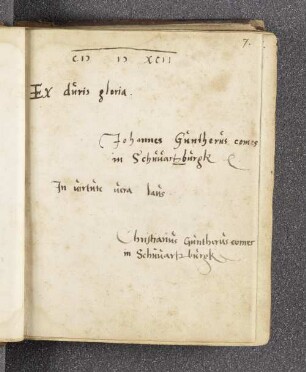 7.
CIↃ IↃ XCII
Ex duris gloria.
Johannes Güntherus comes
in Schwartzburgk
In virtute vera laus
Christianus Güntherus comes
in Schwartzburgk